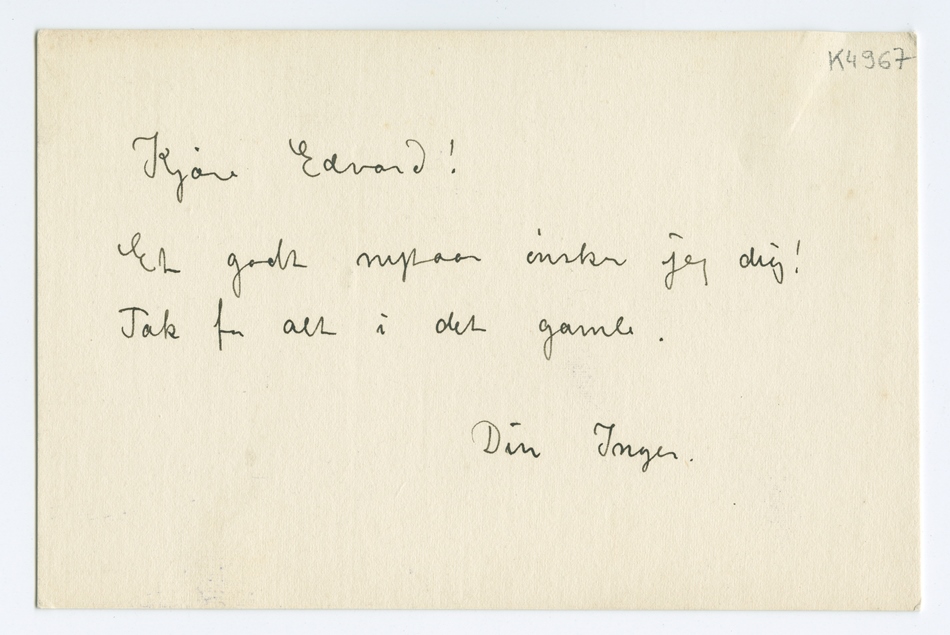 K4967
Kjære Edvard!
Et godt nytaar ønsker jeg dig!
Tak for alt i det gamle.
Din Inger.